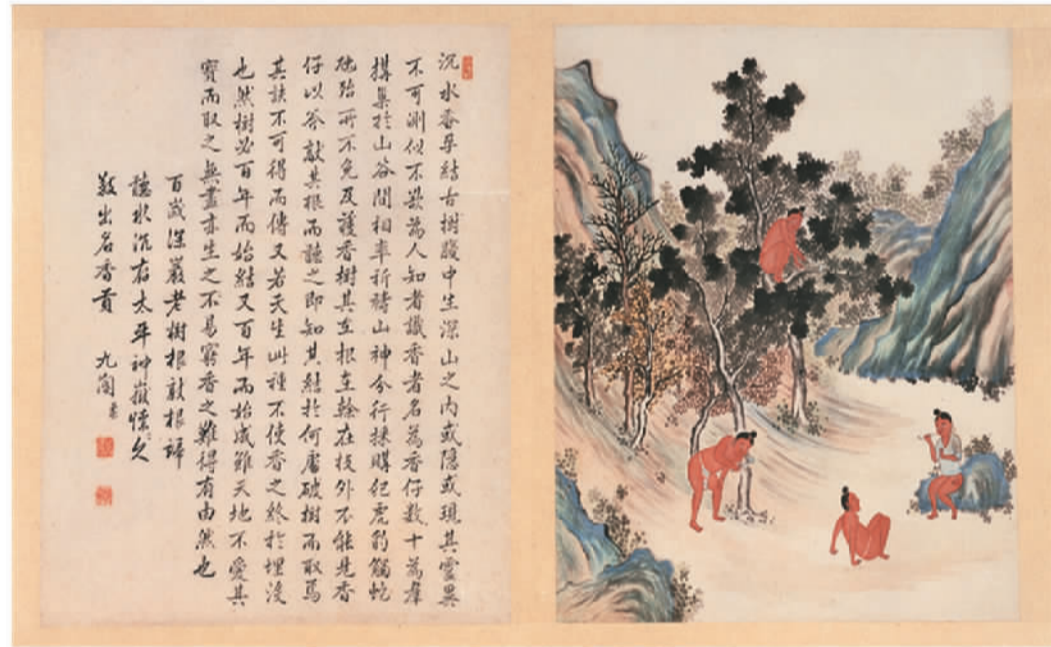 沉水香孕結古樹腹中生深山之內或隱或現其靈異
不可測似不欲為人知者識香者名為香仔數十為羣
搆巢於山谷間相率祈禱山神分行採購犯虎豹觸蛇
虺殆所不免及獲香樹其在根在榦在枝外不能見香
仔以斧敲其根而聽之即知其結於何處破樹而取焉
其訣不可得而傳又若天生此種不使香之終於埋沒
也然樹必百年而始結又百年而始成雖天地不愛其
寶而取之無盡亦生之不易窮香之難得有由然也
百歲深巖老樹根敲根諦
聽水沉存太平神嶽久
敬出名香貢九閽